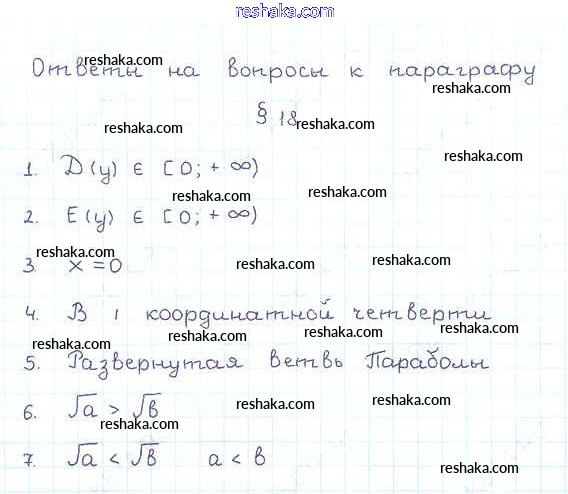 reshaka.com
reshaka.com
Ответы на вопросы к параграфу
reshaka.com
§ 18
reshaka.com reshaka.com
1. D(y) ∈ [0; +∞)
reshaka.com
reshaka.com reshaka.com
2. E(y) ∈ [0; +∞)
reshaka.com reshaka.com reshaka.com
3. x = 0
4. В 1 координатной четверти
reshaka.com reshaka.com reshaka.com
5. Развернутая ветвь Параболы
reshaka.com reshaka.com
6. √a > √b
reshaka.com
7. √a < √b a < b
reshaka.com